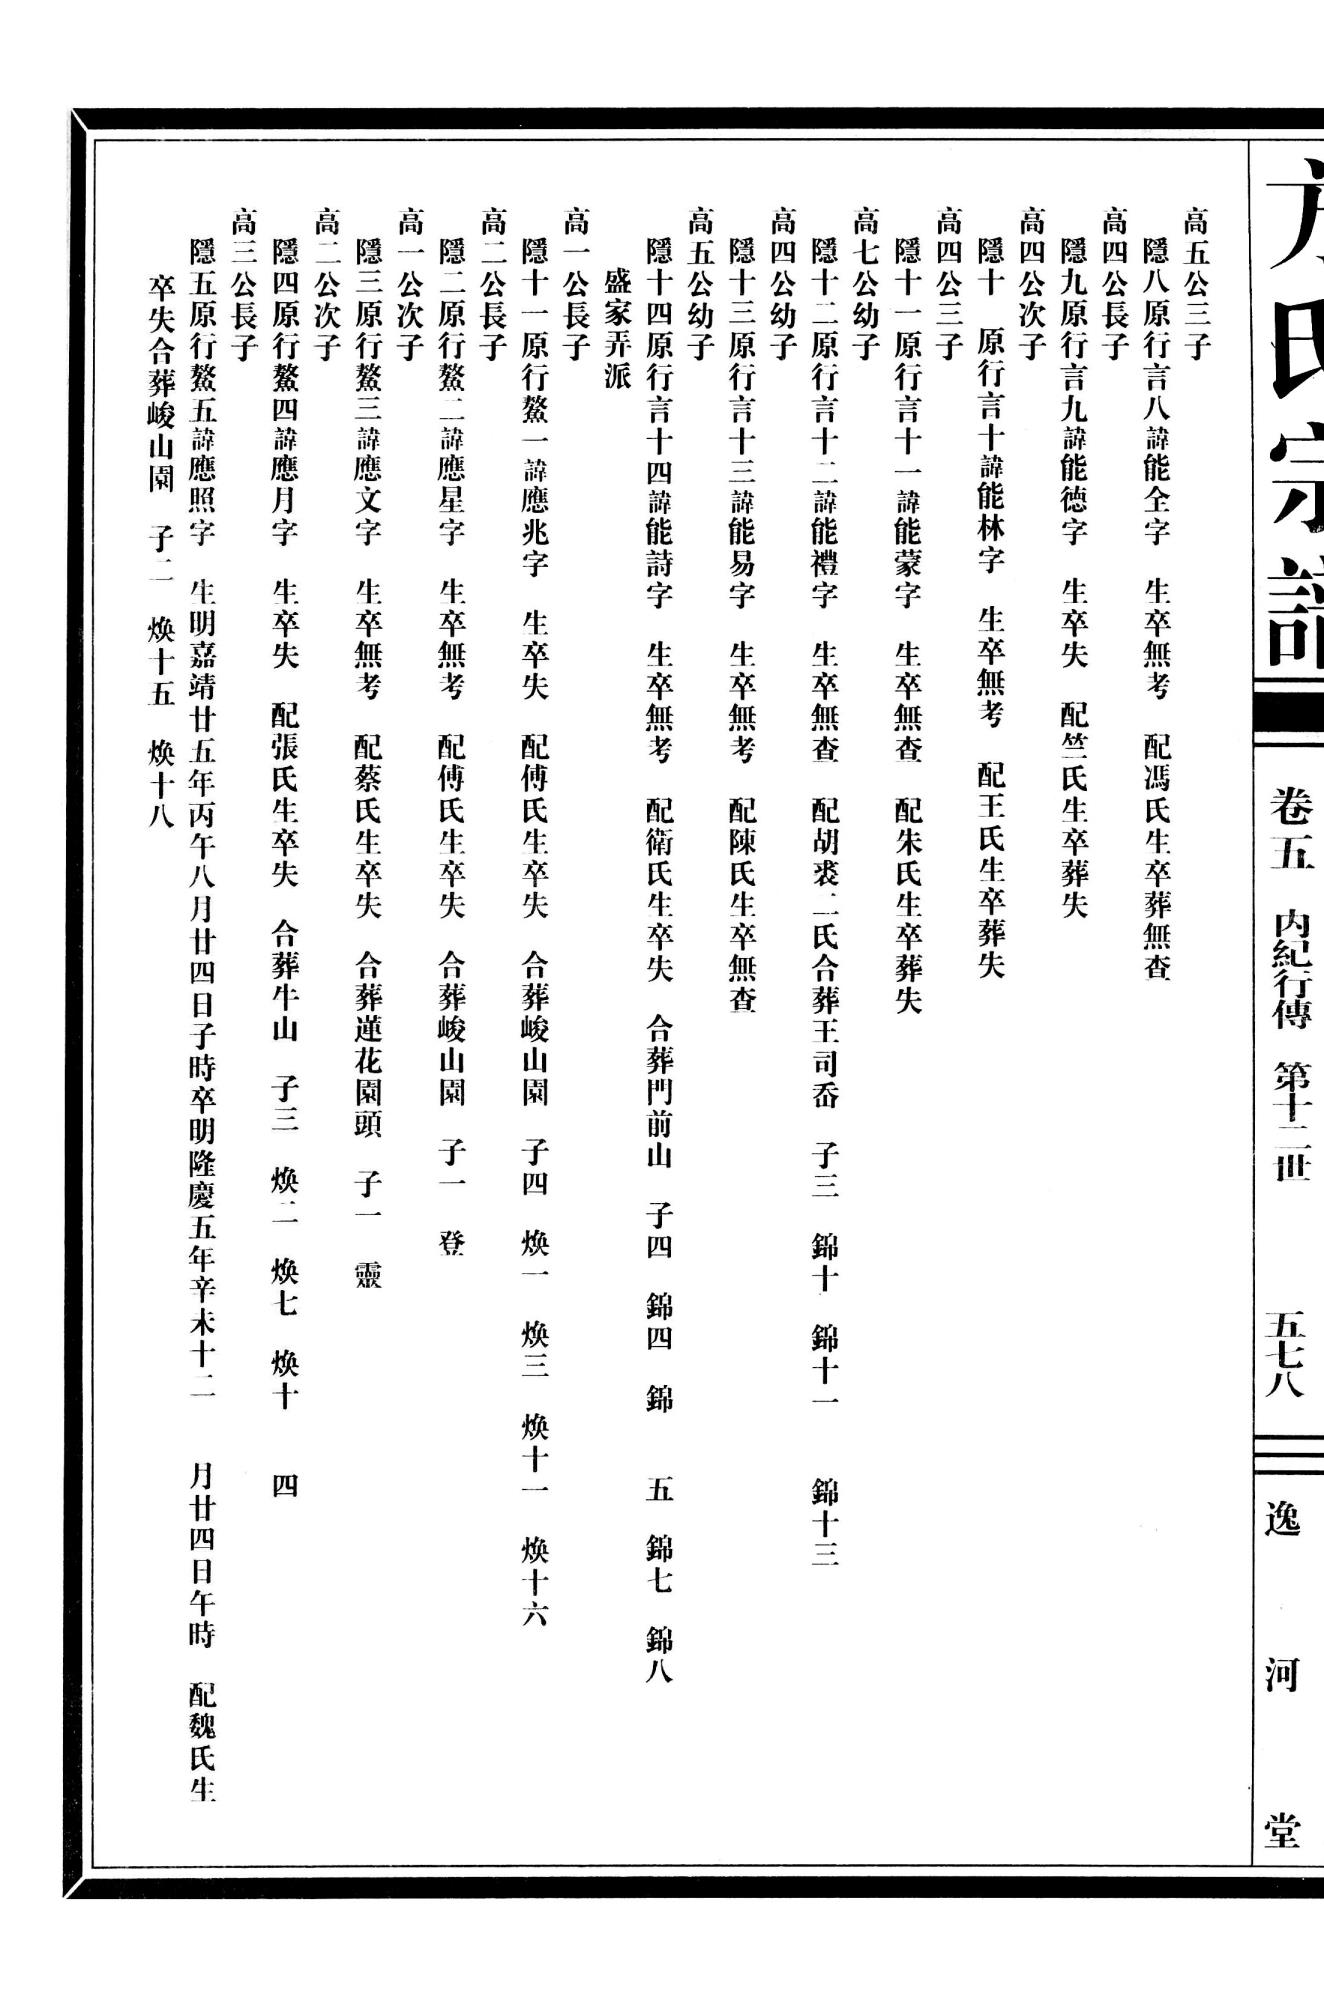 方氏宗譜
卷五　內紀行傳　第十二世　五七八
逸河堂
高五公三子
隱八原行言八諱能全字　生卒無考　配馮氏生卒葬無查
高四公長子
隱九原行言九諱能德字　生卒失　配竺氏生卒葬失
高四公次子
隱十　原行言十諱能林字　生卒無考　配王氏生卒葬失
高四公三子
隱十一原行言十一諱能蒙字　生卒無查　配朱氏生卒葬失
高七公幼子
隱十二原行言十二諱能禮字　生卒無查　配胡裘二氏合葬王司岙　子三　錦十　錦十一　錦十三
高四公幼子
隱十三原行言十三諱能易字　生卒無考　配陳氏生卒無查
高五公幼子
隱十四原行言十四諱能詩字　生卒無考　配衛氏生卒失　合葬門前山　子四　錦四　錦五　錦七　錦八
盛家弄派
高一公長子
隱十一原行鰲一諱應兆字　生卒失　配傅氏生卒失　合葬峻山園　子四　煥一　煥三　煥十一　煥十六
高二公長子
隱二原行鰲二諱應星字　生卒無考　配傅氏生卒失　合葬峻山園　子一　登
高一公次子
隱三原行鰲三諱應文字　生卒無考　配蔡氏生卒失　合葬蓮花園頭　子一　靈
高二公次子
隱四原行鰲四諱應月字　生卒失　配張氏生卒失　合葬牛山　子三　煥二　煥七　煥十四
高三公長子
隱五原行鰲五諱應照字　生明嘉靖廿五年丙午八月廿四日子時卒明隆慶五年辛未十二月廿四日午時　配魏氏生
卒失合葬峻山園　子二　煥十五　煥十八